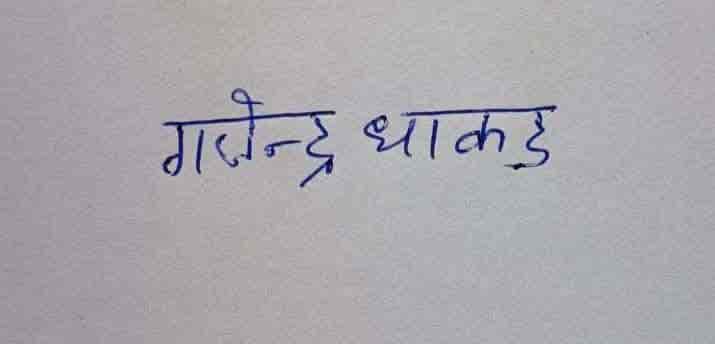 गजेन्द्र धाकड